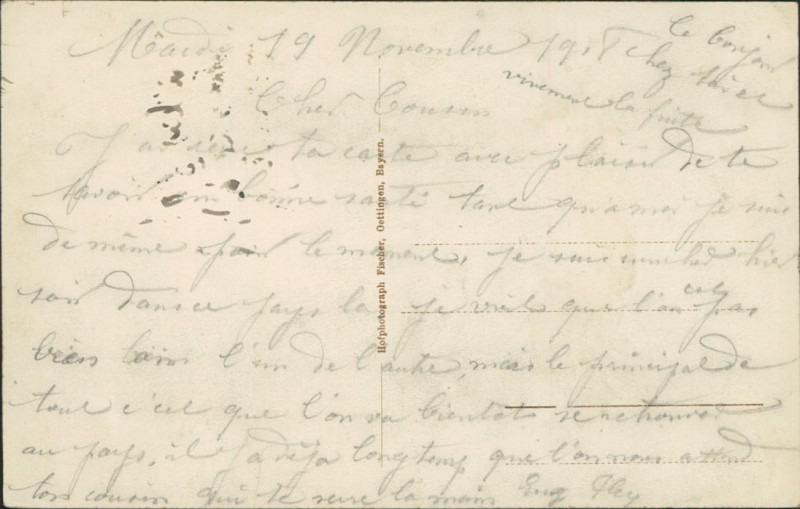 Mardi 19 Novembre 1918
le bonjour
chez toi et
vivement la fuite
Cher Cousin
J'ai reçu ta carte avec plaisir de te
savoir en bonne santé tant qu'a moi je suis
de même pour le moment, je suis hier
soir dans ce pays la je vois que l'on est pas
bien loin l'un de l'autre, mais le principal de
tout c'est que l'on va bientot se retrouver
au pays, il y a déja longtemp que l'on nous attend
ton cousin qui te serre la main Eug
Hofphotograph Fischer, Oettingen, Bayern.